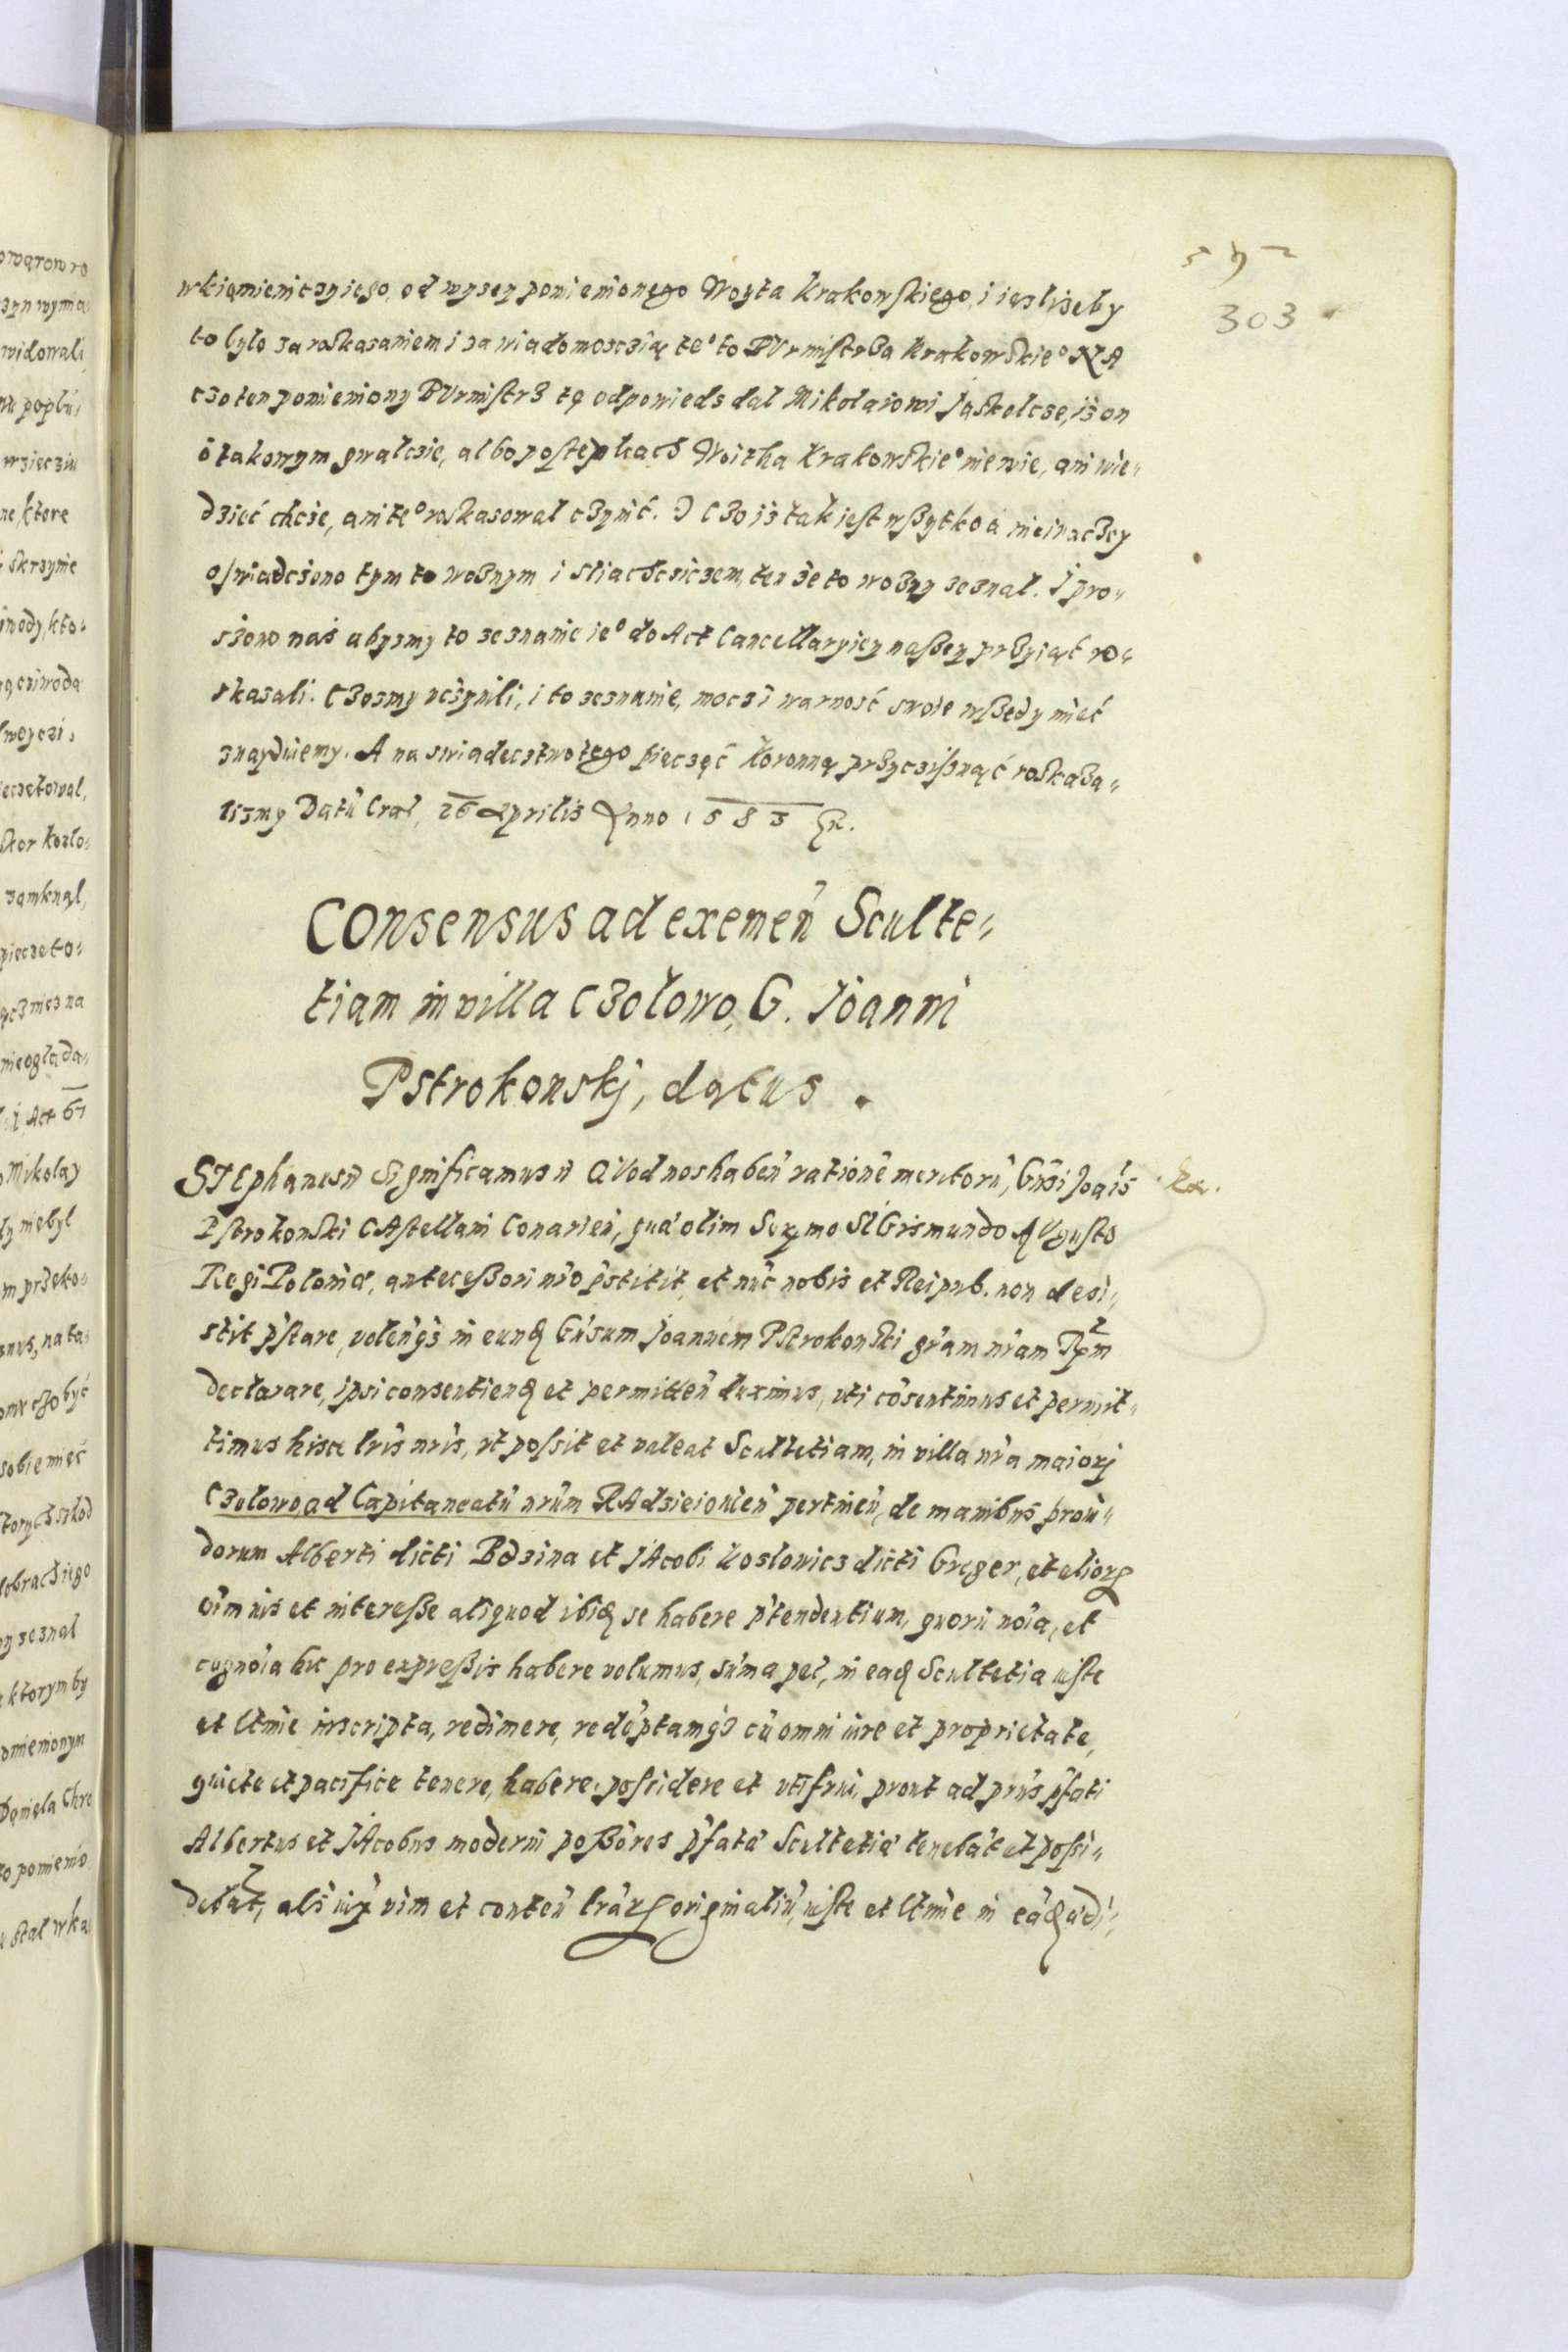 303
wkiąmieniczniego, od wyszey ponienionego Woyta Krakowskiego, i iesliseby
to bylo za roskasaniem i za wiadomosczią te° to BUrmistrza Krakowskie° NA
czo ten ponieniony BUrmistrz tę odpowieds dal Mikolaiowi Jaskolcze, iż on
o takowym gwalczie, albo postępkach Woitha Krakowskie° nie wie, ani wie„
dzieć chcie, ani te° roskasowal czynić. I czo iż tak iest wszytko a nieinaczey
oswiadczono tym to woznym i sliachcziczem, ten że to wozny zeznal. I pro„
szono nas abyszmy to zeznanie ie° do Act Cancellaryiey naszey przyiąć ro„
skasali. Czoszmy uczynili, i to zeznanie, mocz i warnosć swoie wszędy mieć
znayduiemy. A na swiadecztwo tego pięczęć koronną przyczisznąć roskaza„
liszmy Datū Cra͠c, 26 Aprilis Anno 1583
Consensus ad exemeñ Sculte„
tiam in villa Czolowo, G. Joanni
Pstrokonskj, datus.
STEphanus Significamus QUod nos habeñ rationē meritorū, Gñsi Joañis
Pstrokonski CAstellani Conarieñ, quā olim Serᵐᵒ SIGismundo AUgusto
Regi Poloniæ, antecessori nr̃o p̃stitit, et nūc nobis et Reipub. non desi„
stit p̃stare, volenq̃ in eundē Gñsum Joannem Pstrokonski gr̃am nr̃am
declarare, ipsi consentiendᵉ et permitteñ duximus, uti cōsentimus et permit„
timus hisce lr̃is nr̃is, ut possit et valeat Scultetiam, in villa nr̃a maiorj
Czolowo, ad Capitaneatū nr̃um RAdzieiovieñ pertineñ, de manibus provi„
dorum Alberti dicti Bdzina et JAcobi Koslowicz dicti Greger, et alioꝝ
oīm ius et interesse aliquod ibidē se habere p̃tendentium, quorū noīa, et
cognoīa hic pro expressis habere volumus, sūma pec̃, in eadē Scultetia iuste
et ltīme inscripta, redimere, redēptamq̃ cū omni iure et proprietate,
quiete et pacifice tenere, habere, possidere et utifrui, prout ad pr̃ns p̃fati
Albertus et JAcobus moderni possōres p̃fatā Scultetiā tenebāt et possi„
debāt, als iux̃ vim et conteñ lr̃aꝝ originaliū, iuste et ltīme in eādē ædi„